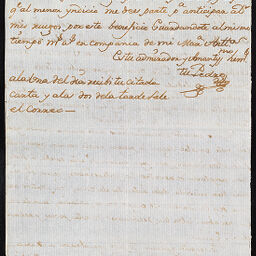 q.e al menor yndicio me des parte p.a anticipar al
mis ruegos por este beneficio Guardandote al mismo
tiempo m.s a.s en compañia de mi
Estu admirador y Amante
tu Pedro
ala una del dia recibi tu citada
carta y alas dos dela tarde sale
el Correo